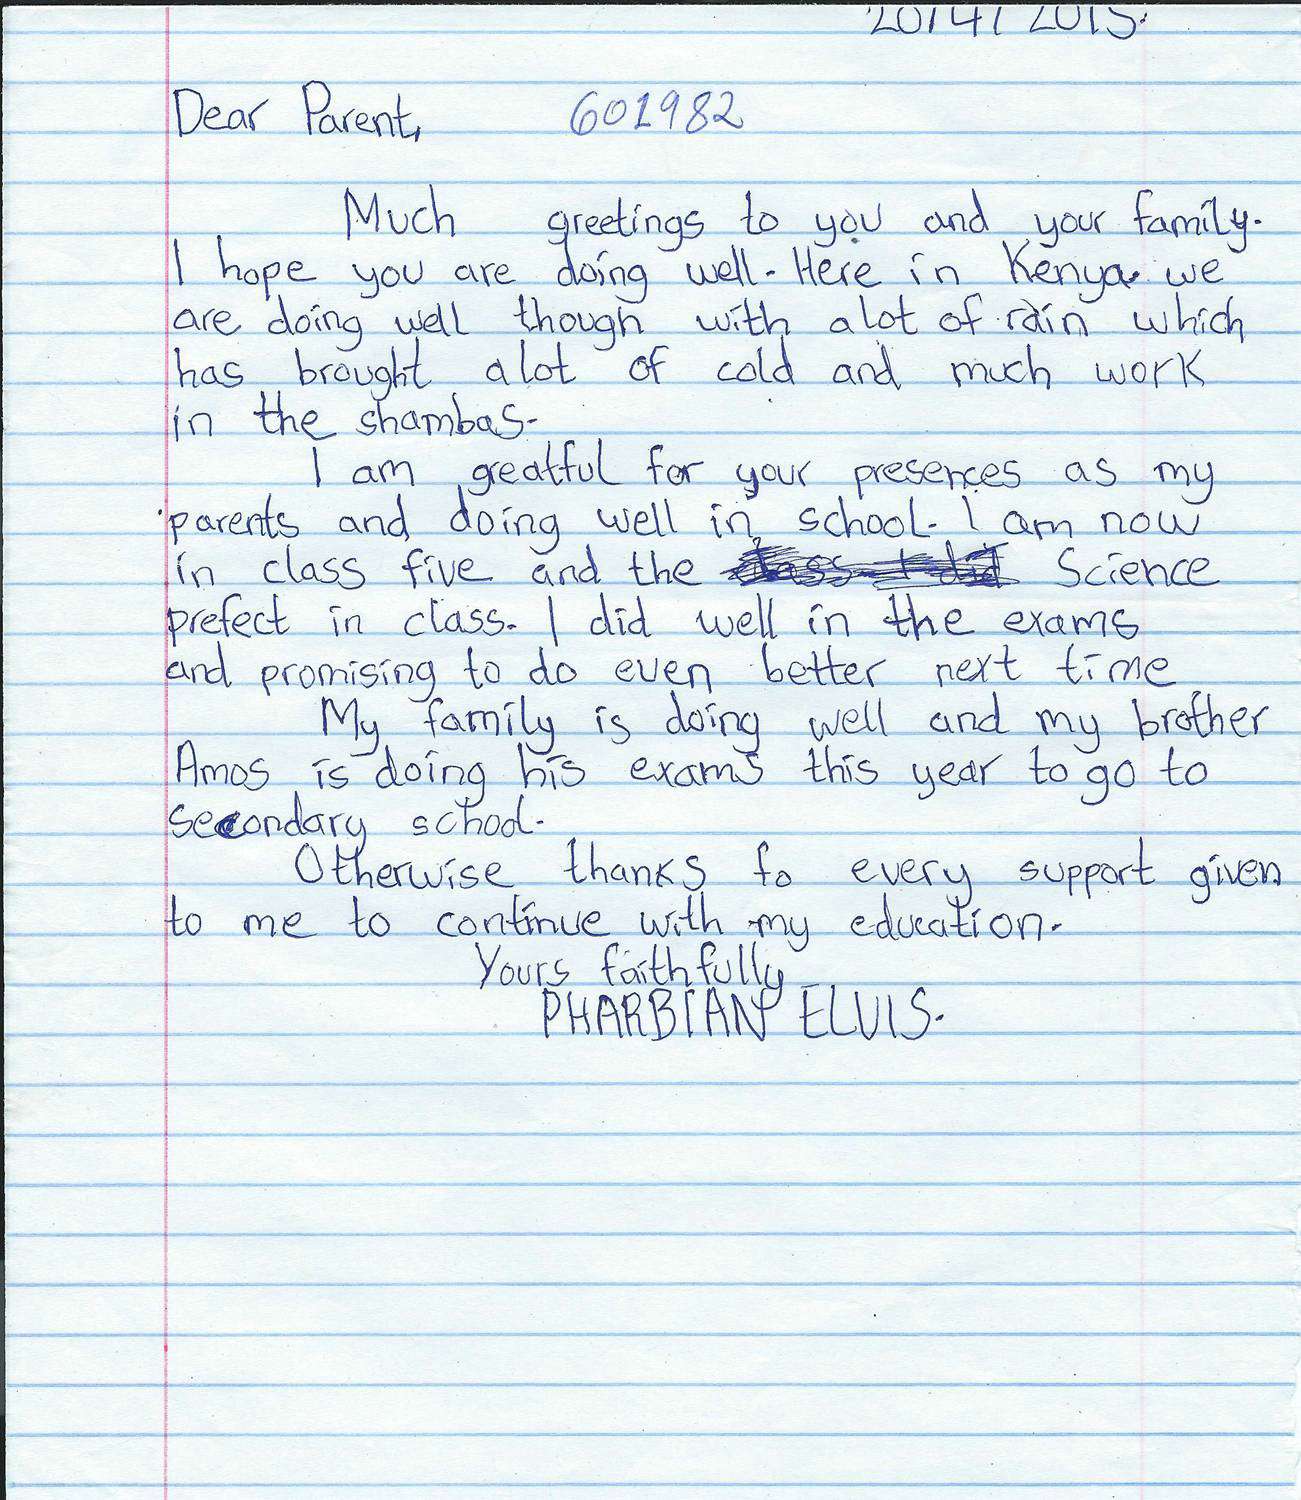 20/4/2015.
Dear Parent, 601982
Much greetings to you and your family.
I hope you are doing well. Here in Kenya we
are doing well though with alot of rain which
has brought alot of cold and much work
in the shambas.
I am greatful for your presences as my
parents and doing well in school. I am now
in class five and the Science
prefect in class. I did well in the exams
and promising to do even better next time
My family is doing well and my brother
Amos is doing his exams this year to go to
secondary school.
Otherwise thanks fo every support given
to me to continue with my education.
Yours faithfully
PHARBIAN ELVIS.